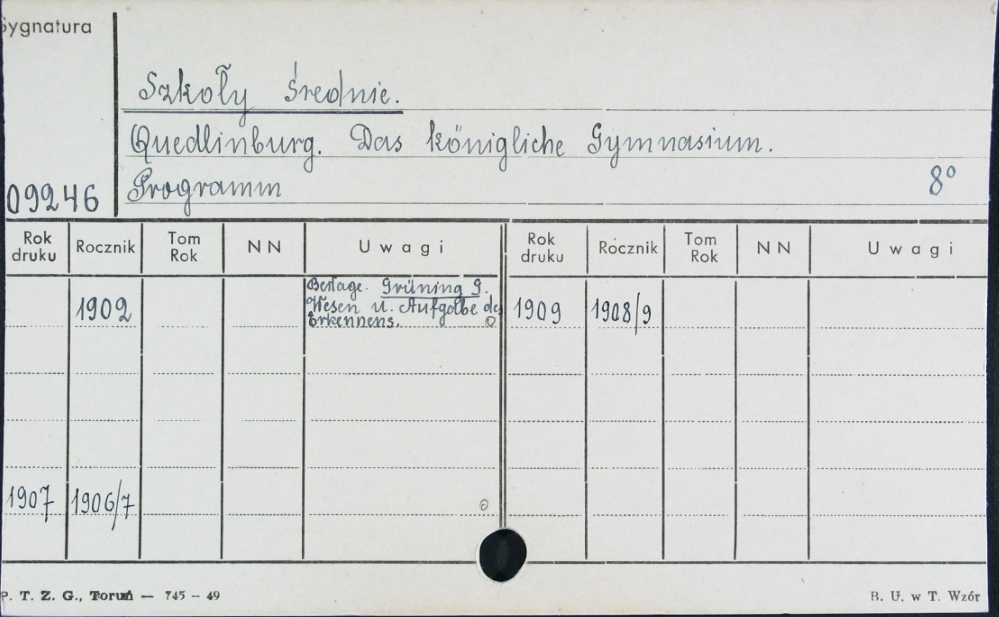 Sygnatura
Szkoły średnie.
Quedlinburg. Das königliche Gymnasium.
09246 Programm 8°
Rok druku Rocznik Tom Rok NN Uwagi Rok druku Rocznik Tom Rok NN Uwagi
1902 Beilage. Grüning G. 1909 1908/9
Wesen u. Aufgabe des
Erkennens.
1907 1906/7
P. T. Z. G., Toruń — 745 – 49 B. U. w T. Wzór